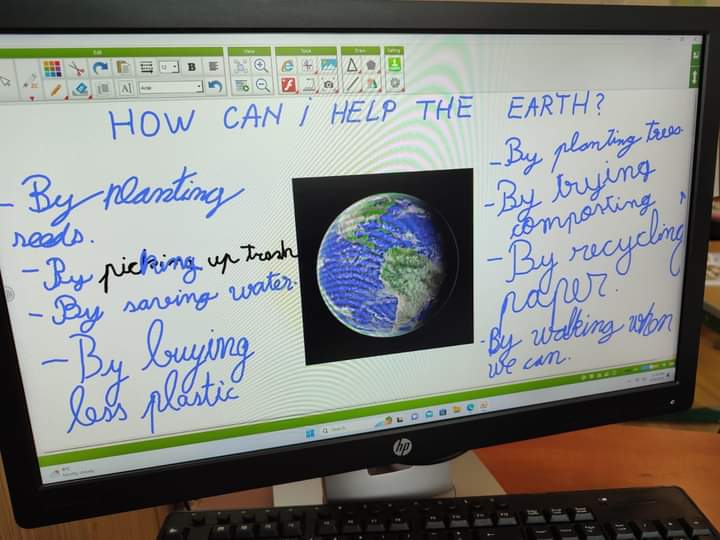 HOW CAN i HELP THE EARTH?
- By planting
seeds.
- By picking up trash
- By saving water.
- By buying
less plastic
- By planting trees.
- By trying
composting
- By recycling
paper.
- By walking when
we can.
Search
hp